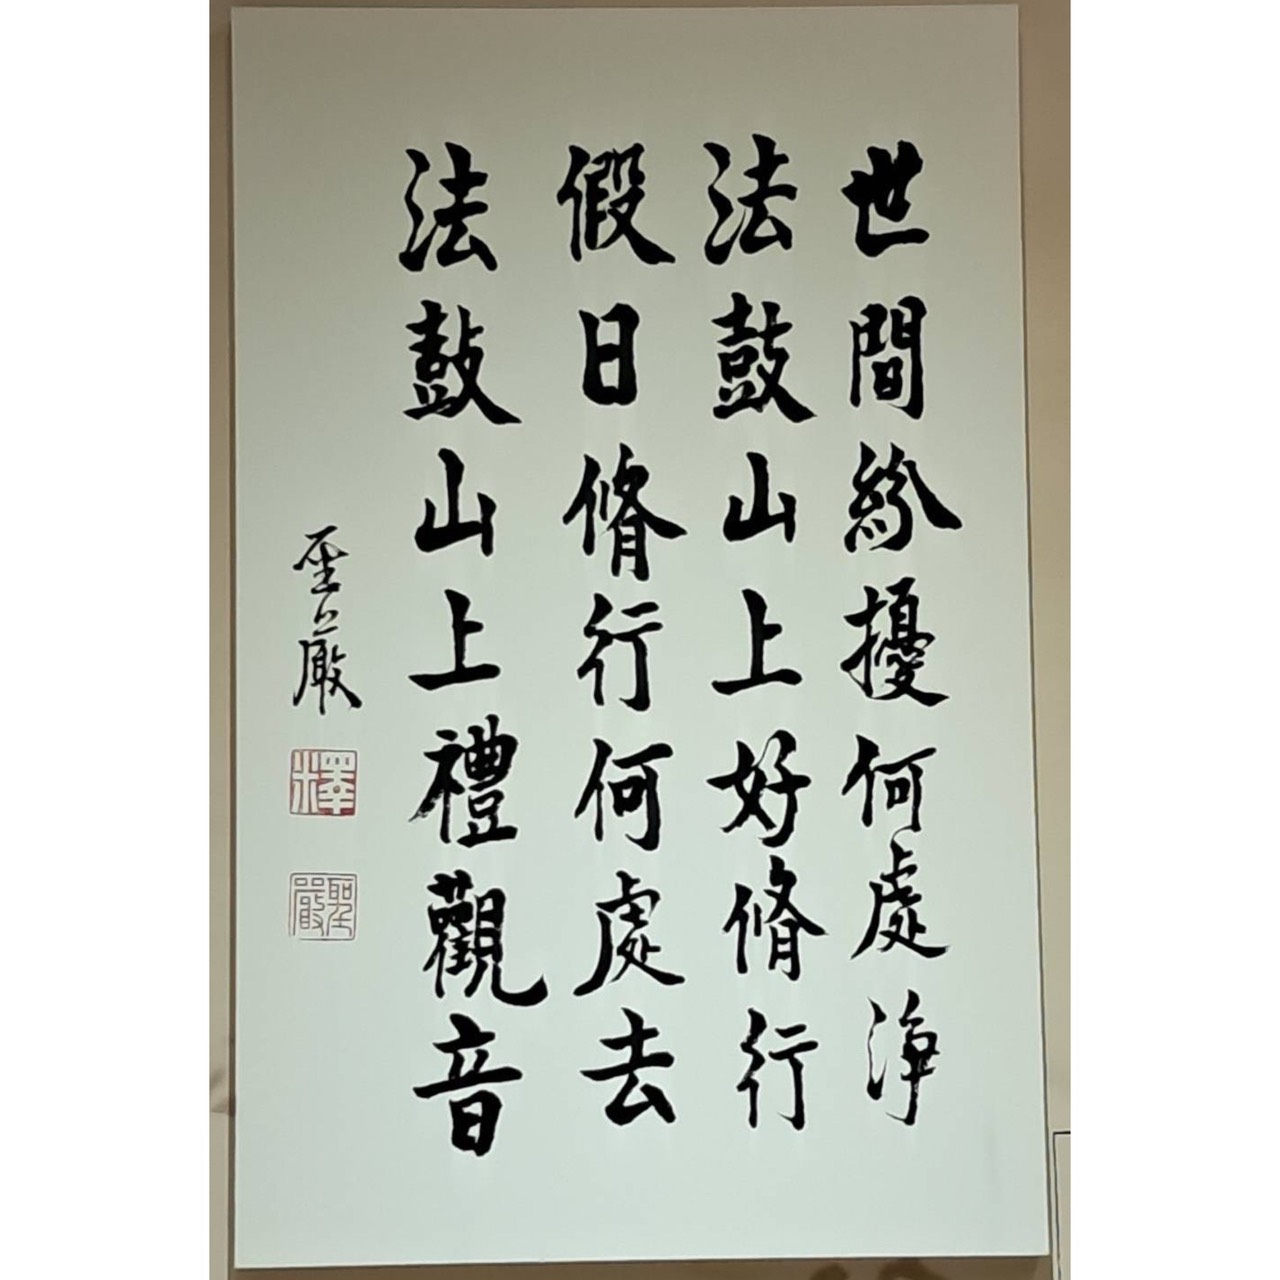 世間紛擾何處淨
法鼓山上好脩行
假日脩行何處去
法鼓山上禮觀音
聖嚴
釋
聖嚴